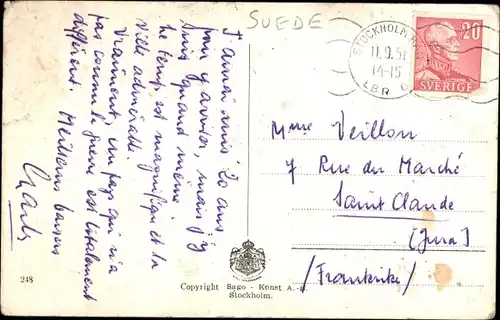 SUEDE
J'aurai mis 20 ans
pour y arriver, mais j'y
suis quand même.
le temps est magnifique et la
ville admirable.
Vraiment, un pays qui n'a
pas connu la guerre, est totalement
différent. Meilleurs baisers
Charles
STOCKHOLM
11.9.51
14-15
LBR
20
SVERIGE
Mme Veillon
7 Rue du Marché
Saint Claude
(Jura)
/Frankrike/
248
Copyright Sago - Konst A.-
Stockholm.